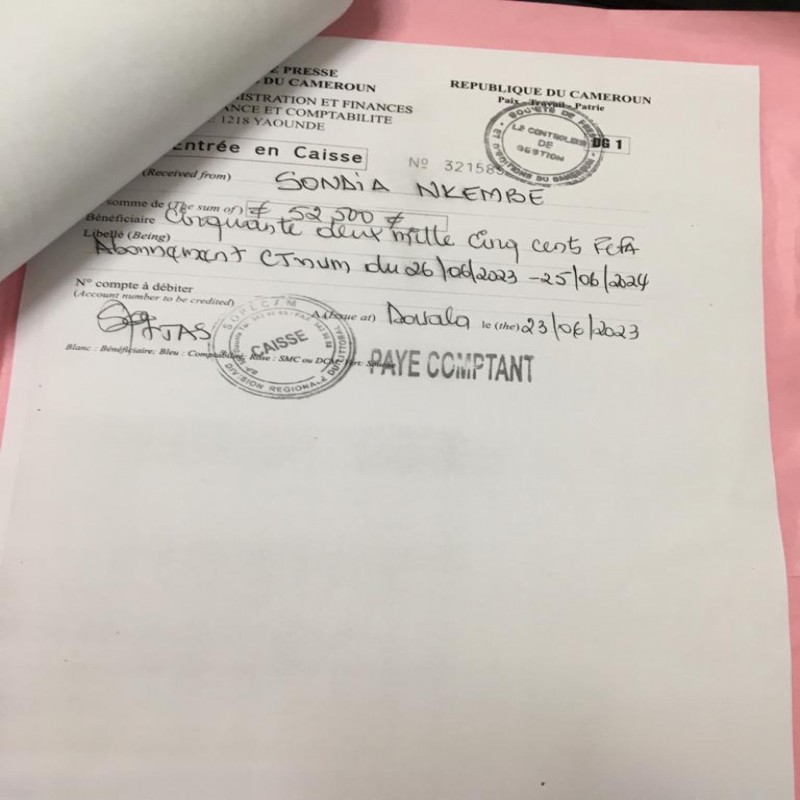 E PRESSE
DU CAMEROUN
ISTRATION ET FINANCES
ANCE ET COMPTABILITE
1218 YAOUNDE
REPUBLIQUE DU CAMEROUN
Paix - Travail - Patrie
SOCIETE DE PRESSE ET D'EDITIONS DU CAMEROUN
LE CONTROLEUR
DE
GESTION
DG 1
Entrée en Caisse
Nº 321585
(Received from) SONDIA NKEMBE
somme de (The sum of) # 52 500 #
Bénéficiaire Cinquante deux mille cinq cents FCFA
Libellé (Being)
Abonnement CTnum du 26/06/2023 - 25/06/2024
N° compte à débiter
(Account number to be credited)
A (Issue at) Douala le (the) 23/06/2023
SOPECAM
CAISSE
DIVISION REGIONALE DU LITTORAL
Blanc : Bénéficiaire; Bleu : Comptabilité; Rose : SMC ou DCM; Vert: Souche
PAYE COMPTANT